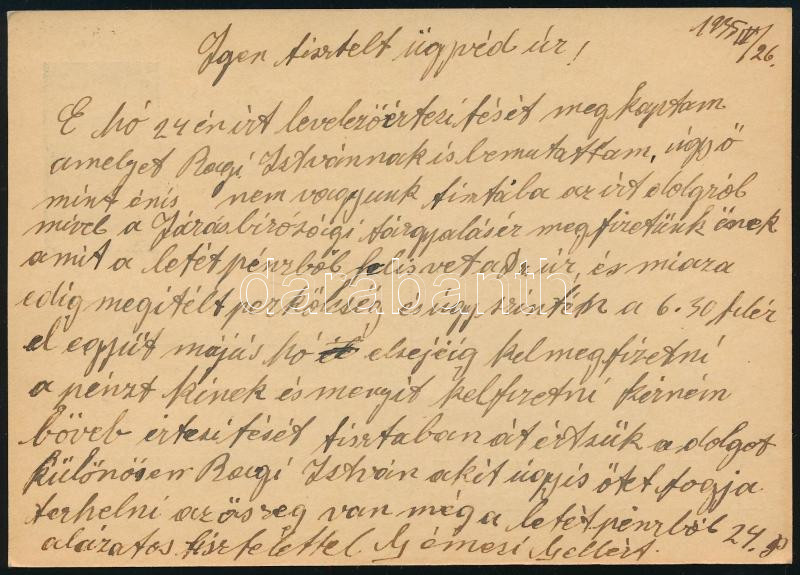 1935 IV/26.
Igen tisztelt ügyvéd úr!
E hó 24 én írt levelezőértezitését megkaptam
amelyet Ragi Istvánnak is bemutattam, úgy ő
mint énis nem vagyunk tisztába az írt dologról
mivel a Járásbirózsigi tárgyalásér megfizetünk
amit a letét pénzből kis vet a Dr úr, és miaza
edig megitélt perköltség és úgy szintén a 6.30 filér
el együt május hó elsejéig kel megfizetni
a pénzt kinek és menyit kelfizetni kérném
böveb értezitését tisztaban át értszük a dolgot
különösen Ragi István akit úgyis őket fogja
terhelni az össeg van még a letét pénzből 24. P
alázatos tisztelettel Némesi Gellért.
darabanth